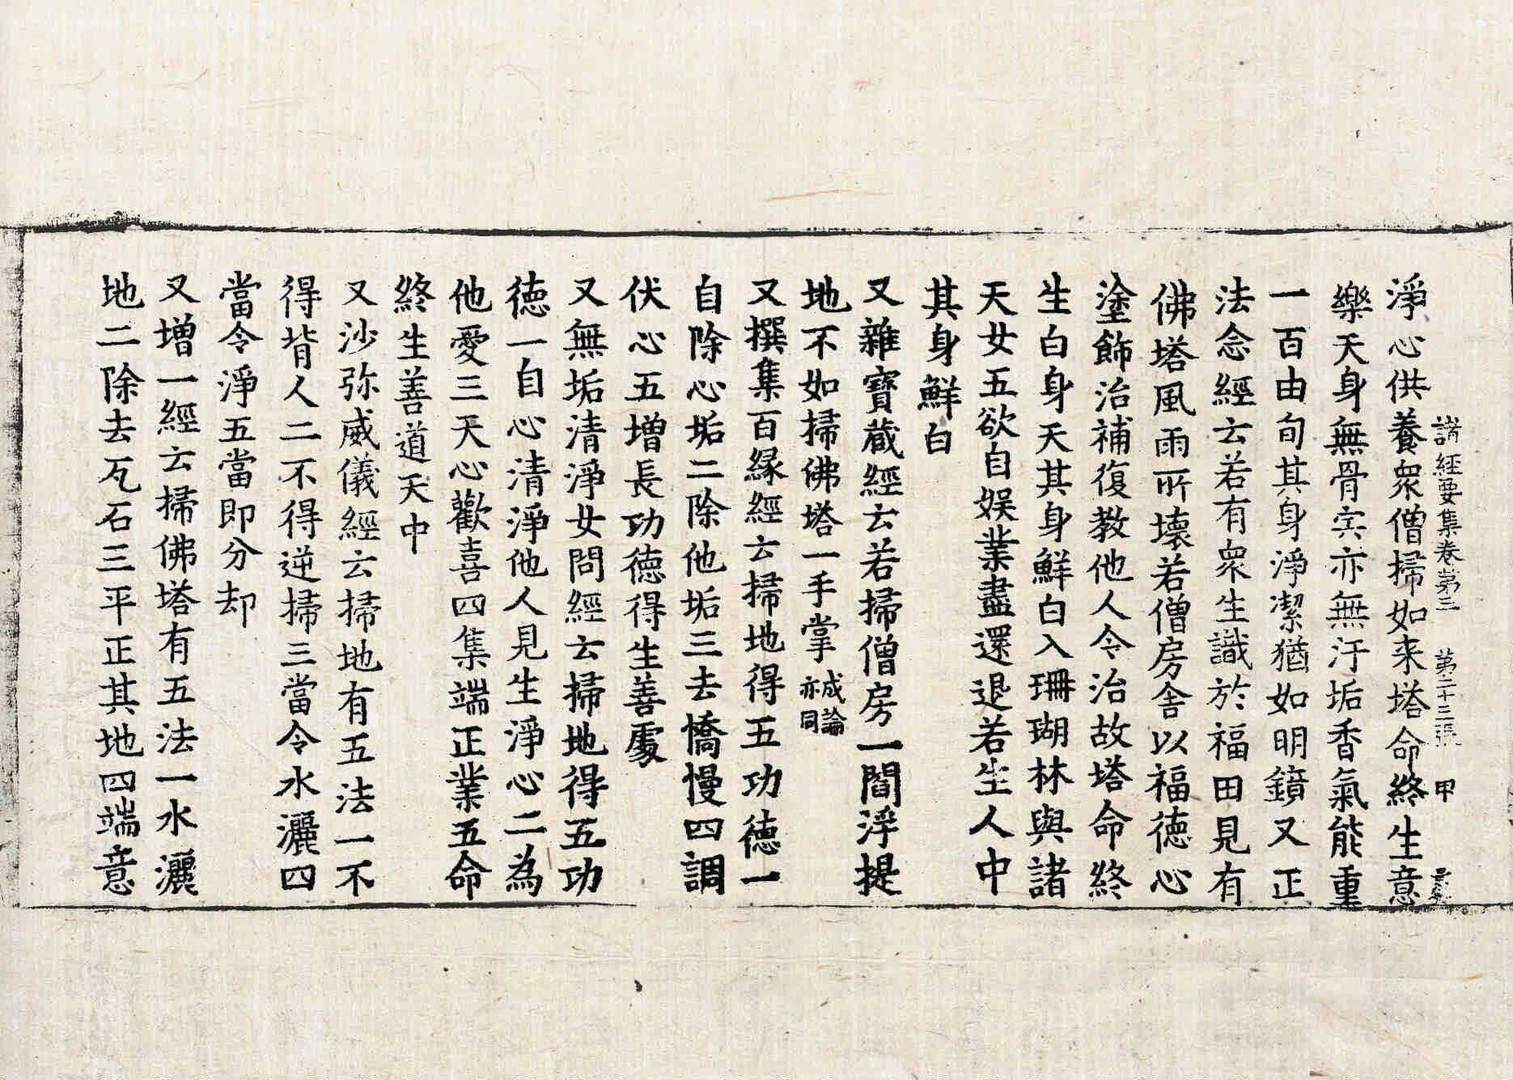 諸經要集卷第三 第二十三張 甲
淨心供養衆僧掃如来塔命終生意
樂天身無骨宍亦無汙垢香氣能重
一百由旬其身淨潔猶如明鏡又正
法念經云若有衆生識於福田見有
佛塔風雨所壞若僧房舍以福德心
塗飾治補復教他人令治故塔命終
生白身天其身鮮白入珊瑚林與諸
天女五欲自娛業盡還退若生人中
其身鮮白
又雜寶蔵經云若掃僧房一閻浮提
地不如掃佛塔一手掌成論亦同
又撰集百縁經云掃地得五功德一
自除心垢二除他垢三去憍慢四調
伏心五增長功德得生善處
又無垢清淨女問經云掃地得五功
德一自心清淨他人見生淨心二為
他愛三天心歡喜四集端正業五命
終生善道天中
又沙弥威儀經云掃地有五法一不
得背人二不得逆掃三當令水灑四
當令淨五當即分却
又增一經云掃佛塔有五法一水灑
地二除去瓦石三平正其地四端意